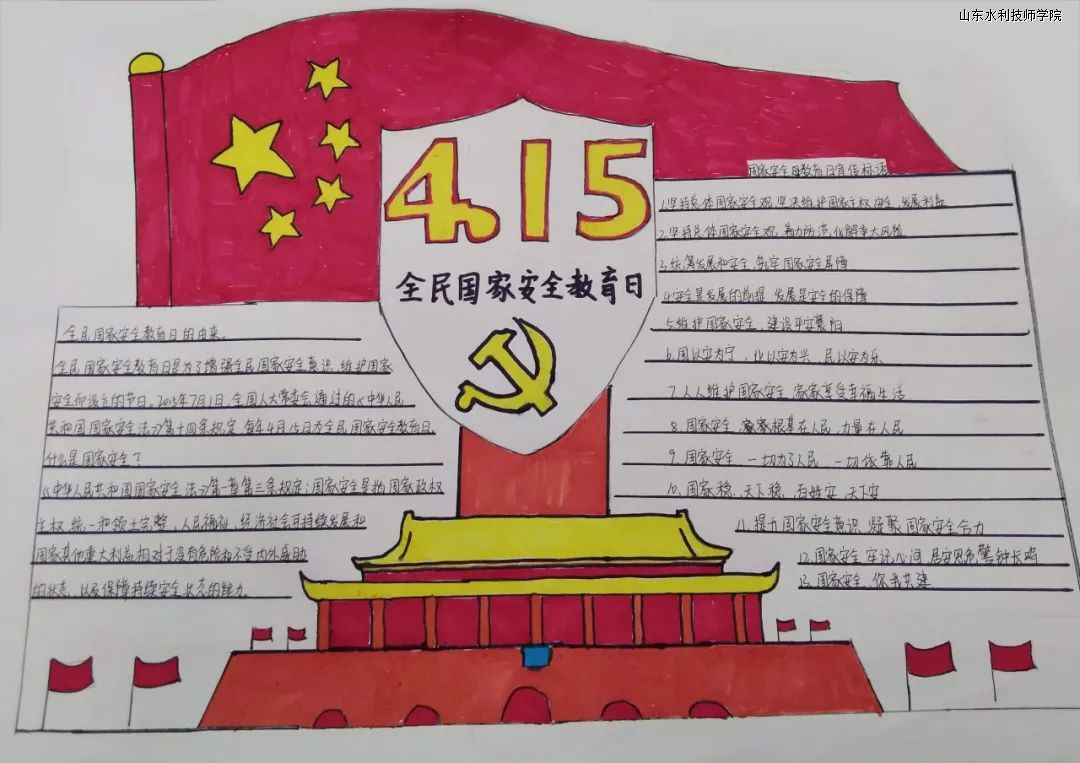 山东水利技师学院
4.15
全民国家安全教育日
全民国家安全教育日的由来。
全民国家安全教育日是为了增强全民国家安全意识、维护国家
安全而设立的节日。2015年7月1日,全国人大常委会通过的《中华人民
共和国国家安全法》第十四条规定,每年4月15日为全民国家安全教育日。
什么是国家安全?
《中华人民共和国国家安全法》第一章第三条规定:国家安全是指国家政权
主权、统一和领土完整、人民福祉、经济社会可持续发展和
国家其他重大利益相对于没有危险和不受内外威胁
的状态,以及保障持续安全状态的能力
国家安全教育日宣传标语
1.坚持总体国家安全观,坚决维护国家主权、安全、发展利益
2.坚持总体国家安全观,着力防范化解重大风险
3.统筹发展和安全,筑牢国家安全屏障
4.安全是发展的前提,发展是安全的保障
5.维护国家安全,建设平安襄阳
6.国以安为宁,业以安为兴,民以安为乐
7.人人维护国家安全,家家享受幸福生活
8.国家安全,根基在人民,力量在人民
9.国家安全,一切为了人民,一切依靠人民
10.国家稳,天下稳,百姓安,天下安
11.提升国家安全意识,凝聚国家安全合力
12.国家安全,牢记心间,居安思危,警钟长鸣
13.国家安全,你我共建